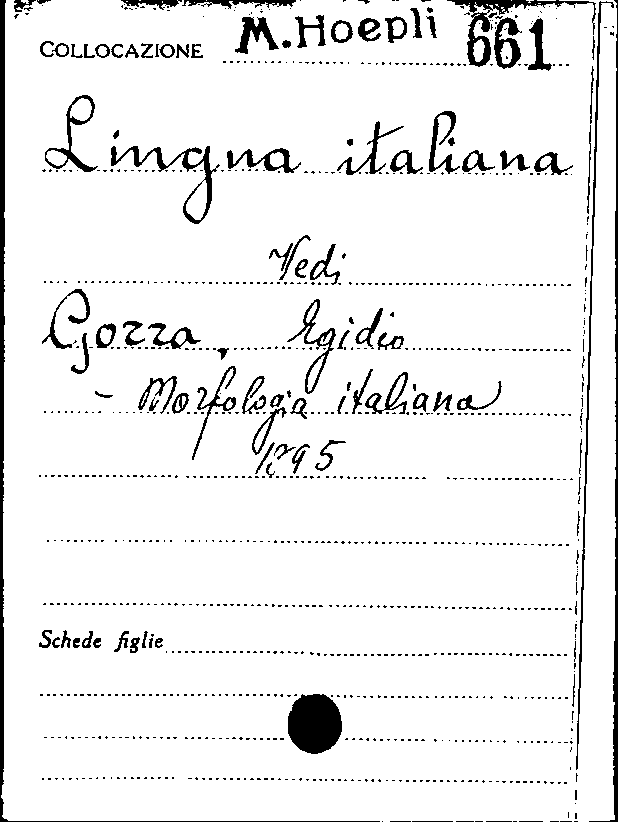 COLLOCAZIONE M. Hoepli 661
Lingua italiana
Vedi
Gorra, Egidio
- Morfologia italiana
1895
Schede figlie